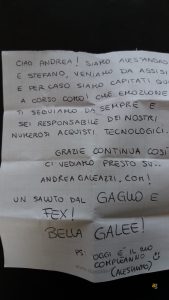 CIAO ANDREA! SIAMO ALESSANDRO
E STEFANO, VENIAMO DA ASSISI
E PER CASO SIAMO CAPITATI QUI
A CORSO COMO! CHE EMOZIONE
TI SEGUIAMO DA SEMPRE E
SEI RESPONSABILE DEI NOSTRI
NUMEROSI ACQUISTI TECNOLOGICI.
GRAZIE CONTINUA COSÌ
CI VEDIAMO PRESTO SU...
ANDREA GALEAZZI.COM!
UN SALUTO DAL GAGLIO E
FEX!
BELLA GALEE!
PS: OGGI È IL MIO
COMPLEANNO
(ALESSANDRO)